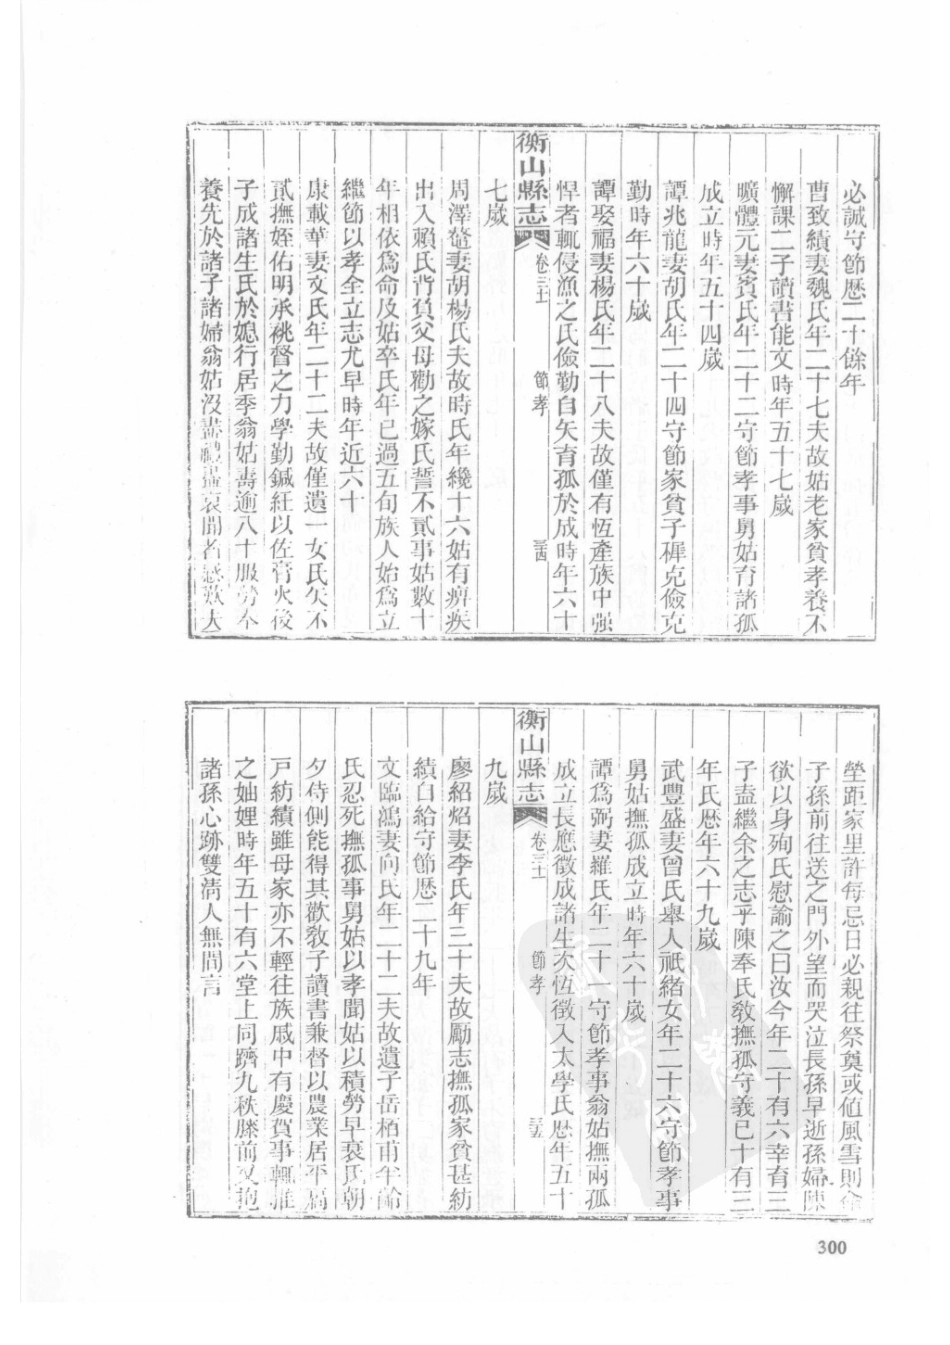 必誠守節歷二十餘年
曹致績妻魏氏年二十七夫故姑老家貧孝養不
懈課二子讀書能文時年五十七歲
曠體元妻賓氏年二十二守節孝事舅姑育諸孤
成立時年五十四歲
譚兆龍妻胡氏年二十四守節家貧子樨克儉克
勤時年六十歲
譚娶福妻楊氏年二十八夫故僅有恆產族中强
悍者輒侵漁之氏儉勤自矢育孤於成時年六十
衡山縣志 卷三十 節孝 三四
七歲
周澤鼇妻胡楊氏夫故時氏年纔十六姑有痹疾
出入賴氏背負父母勸之嫁氏誓不貳事姑數十
年相依爲命及姑卒氏年已過五旬族人始爲立
繼節以孝全立志尤早時年近六十
康載華妻文氏年二十二夫故僅遺一女氏矢不
貳撫姪佑明承祧督之力學勤鍼紝以佐膏火後
子成諸生氏於媳行居季翁姑壽逾八十服勞
養先於諸子諸婦翁姑沒盡禮盡哀聞者
塋距家里許每忌日必親往祭奠或値風雪則命
子孫前往送之門外望而哭泣長孫早逝孫婦陳
欲以身殉氏慰諭之曰汝今年二十有六幸育三
子盍繼余之志乎陳奉氏敎撫孤守義已十有三
年氏歷年六十九歲
武豐盛妻曾氏舉人祇緒女年二十六守節孝事
舅姑撫孤成立時年六十歲
譚爲弼妻羅氏年二十一守節孝事翁姑撫兩孤
成立長應徵成諸生次恆徵入太學氏歷年五十
衡山縣志 卷三十 節孝 三五
九歲
廖紹焰妻李氏年三十夫故勵志撫孤家貧甚紡
績自給守節歷二十九年
文臨鴻妻向氏年二十二夫故遺子岳栢甫半齡
氏忍死撫孤事舅姑以孝聞姑以積勞早衰氏朝
夕侍側能得其歡敎子讀書兼督以農業居平扃
戸紡績雖母家亦不輕往族戚中有慶賀事輒推
之妯娌時年五十有六堂上同躋九秩膝前又抱
諸孫心跡雙淸人無間言
300